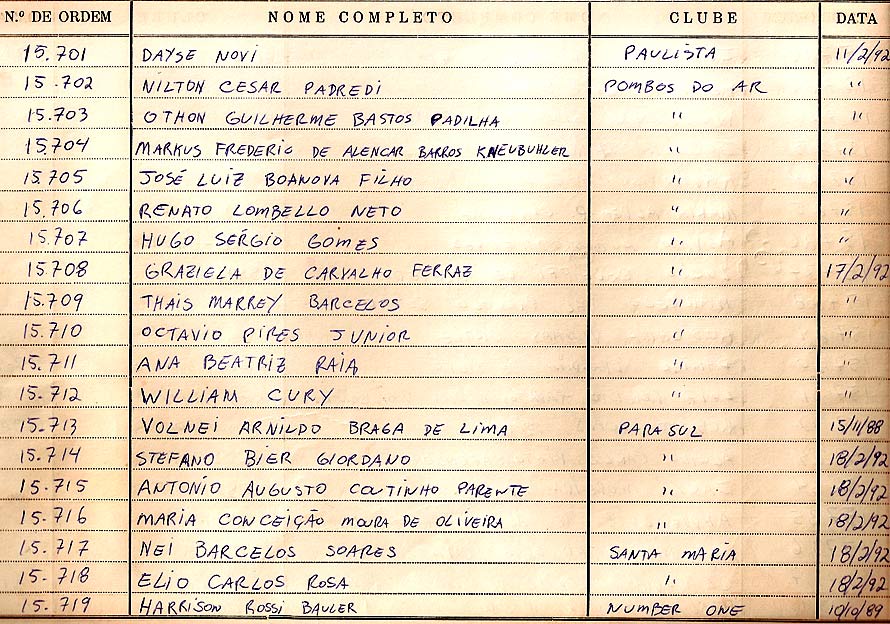 N.º DE ORDEM NOME COMPLETO CLUBE DATA
15.701 DAYSE NOVI PAULISTA 11/2/92
15.702 NILTON CESAR PADREDI POMBOS DO AR "
15.703 OTHON GUILHERME BASTOS PADILHA " "
15.704 MARKUS FREDERIC DE ALENCAR BARROS KNEUBUHLER " "
15.705 JOSÉ LUIZ BOANOVA FILHO " "
15.706 RENATO LOMBELLO NETO " "
15.707 HUGO SÉRGIO GOMES " "
15.708 GRAZIELA DE CARVALHO FERRAZ " 17/2/92
15.709 THAIS MARREY BARCELOS " "
15.710 OCTAVIO PIRES JUNIOR " "
15.711 ANA BEATRIZ RAIA " "
15.712 WILLIAM CURY " "
15.713 VOLNEI ARNILDO BRAGA DE LIMA PARASUL 15/11/88
15.714 STEFANO BIER GIORDANO " 18/2/92
15.715 ANTONIO AUGUSTO COUTINHO PARENTE " 18/2/92
15.716 MARIA CONCEIÇÃO MOURA DE OLIVEIRA " 18/2/92
15.717 NEI BARCELOS SOARES SANTA MARIA 18/2/92
15.718 ELIO CARLOS ROSA " 18/2/92
15.719 HARRISON ROSSI BAULER NUMBER ONE 10/10/89